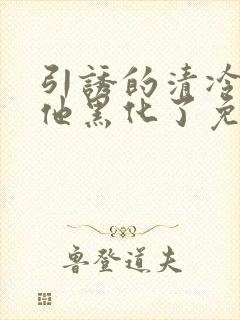 引誘的清冷
他黑化了免
魯登道夫